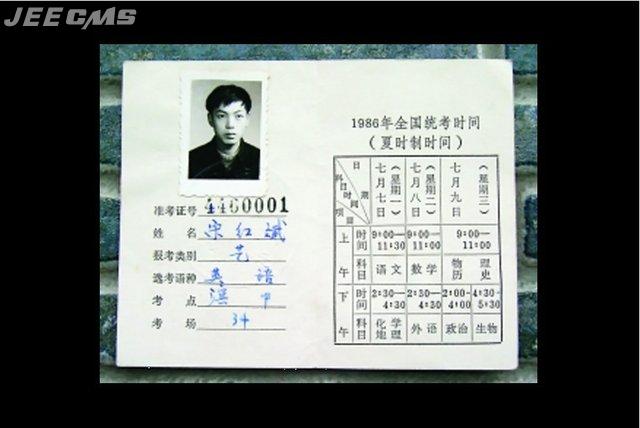 JEECMS
准考证号 4460001
姓名 宋红斌
报考类别 艺
选考语种 英语
考点 滨中
考场 34
1986年全国统考时间
（夏时制时间）
日期 时间 科目 项目 七月七日（星期一） 七月八日（星期二） 七月九日（星期三）
上午 时间 9:00—11:30 9:00—11:00 9:00—11:00
科目 语文 数学 物理 历史
下午 时间 2:30—4:30 2:30—4:30 2:00-4:00 4:30-5:30
科目 化学 地理 外语 政治 生物